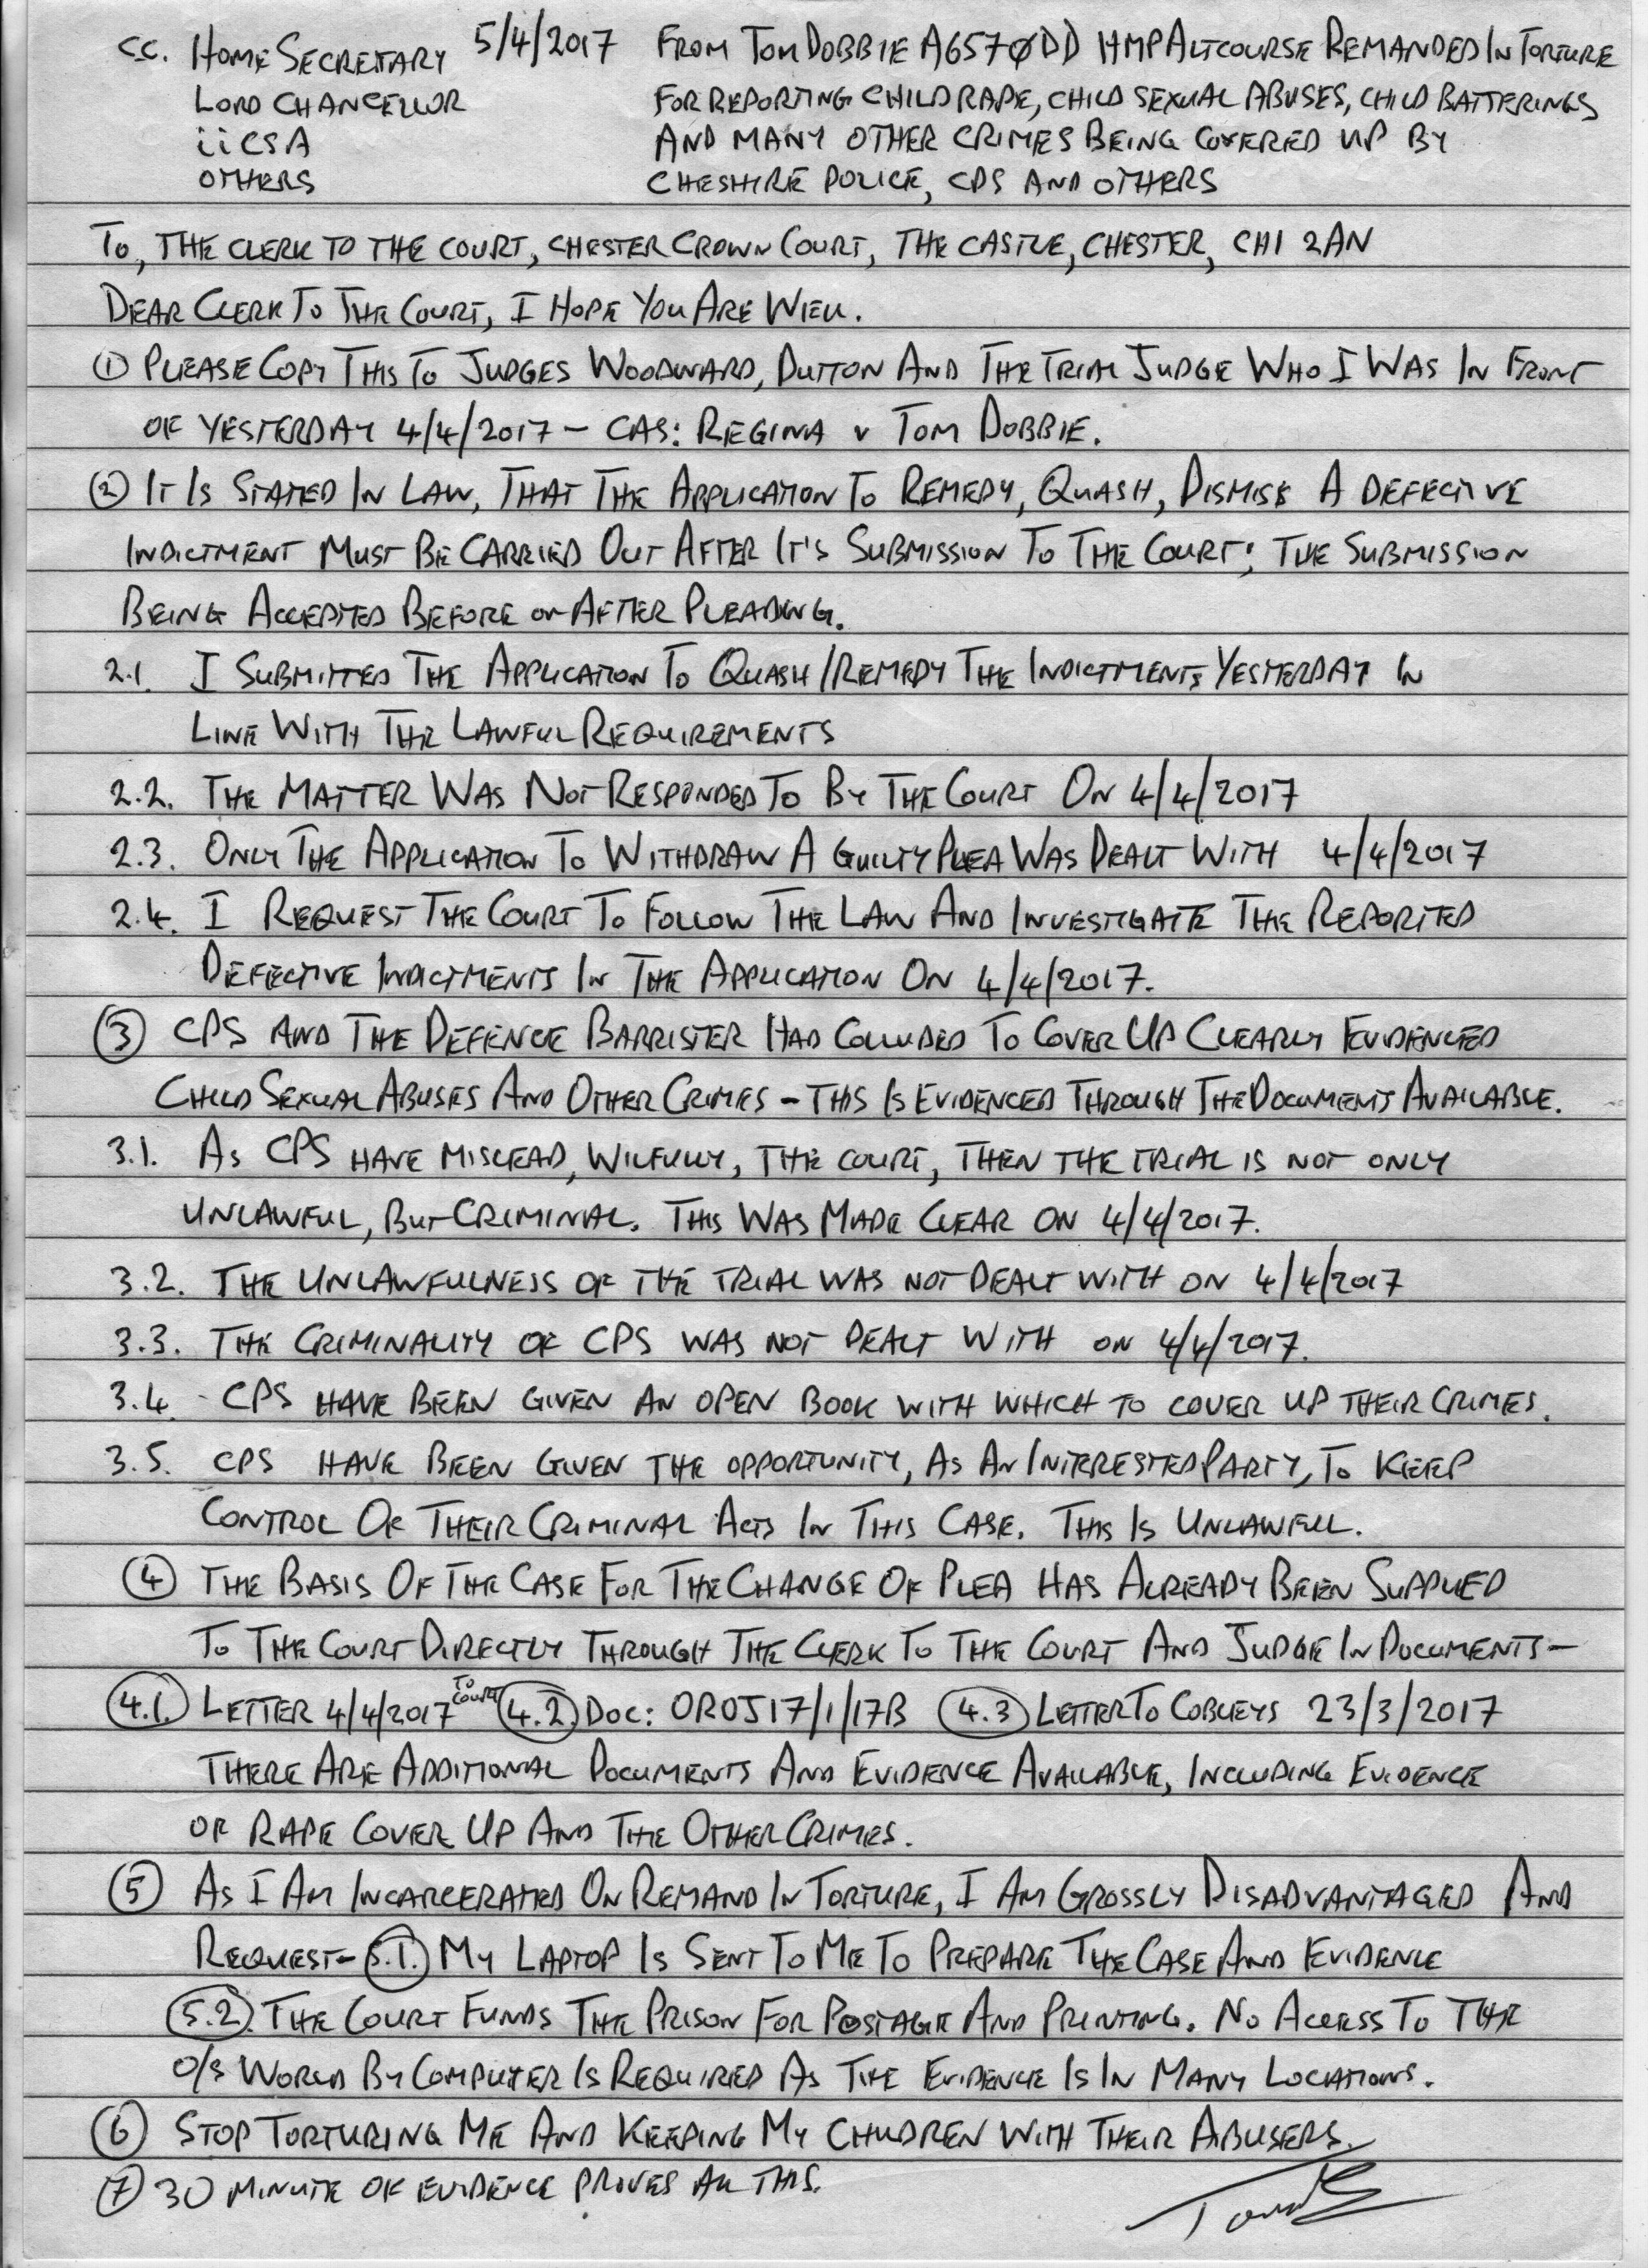 cc. HOME SECRETARY 5/4/2017 FROM TOM DOBBIE A6570DD HMP ALTCOURSE REMANDED IN TORTURE
LORD CHANCELLOR FOR REPORTING CHILD RAPE, CHILD SEXUAL ABUSES, CHILD BATTERINGS
iiCSA AND MANY OTHER CRIMES BEING COVERED UP BY
OTHERS CHESHIRE POLICE, CPS AND OTHERS
TO, THE CLERK TO THE COURT, CHESTER CROWN COURT, THE CASTLE, CHESTER, CH1 2AN
DEAR CLERK TO THE COURT, I HOPE YOU ARE WELL.
① PLEASE COPY THIS TO JUDGES WOODWARD, DUTTON AND THE TRIAL JUDGE WHO I WAS IN FRONT
OF YESTERDAY 4/4/2017 - CAS: REGINA v TOM DOBBIE.
② IT IS STATED IN LAW, THAT THE APPLICATION TO REMEDY, QUASH, DISMISS A DEFECTIVE
INDICTMENT MUST BE CARRIED OUT AFTER IT'S SUBMISSION TO THE COURT; THE SUBMISSION
BEING ACCEPTED BEFORE OR AFTER PLEADING.
2.1. I SUBMITTED THE APPLICATION TO QUASH/REMEDY THE INDICTMENTS YESTERDAY IN
LINE WITH THE LAWFUL REQUIREMENTS
2.2. THE MATTER WAS NOT RESPONDED TO BY THE COURT ON 4/4/2017
2.3. ONLY THE APPLICATION TO WITHDRAW A GUILTY PLEA WAS DEALT WITH 4/4/2017
2.4. I REQUEST THE COURT TO FOLLOW THE LAW AND INVESTIGATE THE REPORTED
DEFECTIVE INDICTMENTS IN THE APPLICATION ON 4/4/2017.
③ CPS AND THE DEFENCE BARRISTER HAD COLLUDED TO COVER UP CLEARLY EVIDENCED
CHILD SEXUAL ABUSES AND OTHER CRIMES - THIS IS EVIDENCED THROUGH THE DOCUMENTS AVAILABLE.
3.1. AS CPS HAVE MISLEAD, WILFULLY, THE COURT, THEN THE TRIAL IS NOT ONLY
UNLAWFUL, BUT CRIMINAL. THIS WAS MADE CLEAR ON 4/4/2017.
3.2. THE UNLAWFULNESS OF THE TRIAL WAS NOT DEALT WITH ON 4/4/2017
3.3. THE CRIMINALITY OF CPS WAS NOT DEALT WITH ON 4/4/2017.
3.4. CPS HAVE BEEN GIVEN AN OPEN BOOK WITH WHICH TO COVER UP THEIR CRIMES.
3.5. CPS HAVE BEEN GIVEN THE OPPORTUNITY, AS AN INTERRESTED PARTY, TO KEEP
CONTROL OF THEIR CRIMINAL ACTS IN THIS CASE. THIS IS UNLAWFUL.
④ THE BASIS OF THE CASE FOR THE CHANGE OF PLEA HAS ALREADY BEEN SUPPLIED
TO THE COURT DIRECTLY THROUGH THE CLERK TO THE COURT AND JUDGE IN DOCUMENTS -
4.1. LETTER 4/4/2017 TO COURT 4.2. DOC: OROJ17/1/17B 4.3 LETTER TO COBLEYS 23/3/2017
THERE ARE ADDITIONAL DOCUMENTS AND EVIDENCE AVAILABLE, INCLUDING EVIDENCE
OF RAPE COVER UP AND THE OTHER CRIMES.
⑤ AS I AM INCARCERATED ON REMAND IN TORTURE, I AM GROSSLY DISADVANTAGED AND
REQUEST - 5.1. MY LAPTOP IS SENT TO ME TO PREPARE THE CASE AND EVIDENCE
5.2. THE COURT FUNDS THE PRISON FOR POSTAGE AND PRINTING. NO ACCESS TO THE
O/S WORLD BY COMPUTER IS REQUIRED AS THE EVIDENCE IS IN MANY LOCATIONS.
⑥ STOP TORTURING ME AND KEEPING MY CHILDREN WITH THEIR ABUSERS.
⑦ 30 MINUTE OF EVIDENCE PROVES ALL THIS.